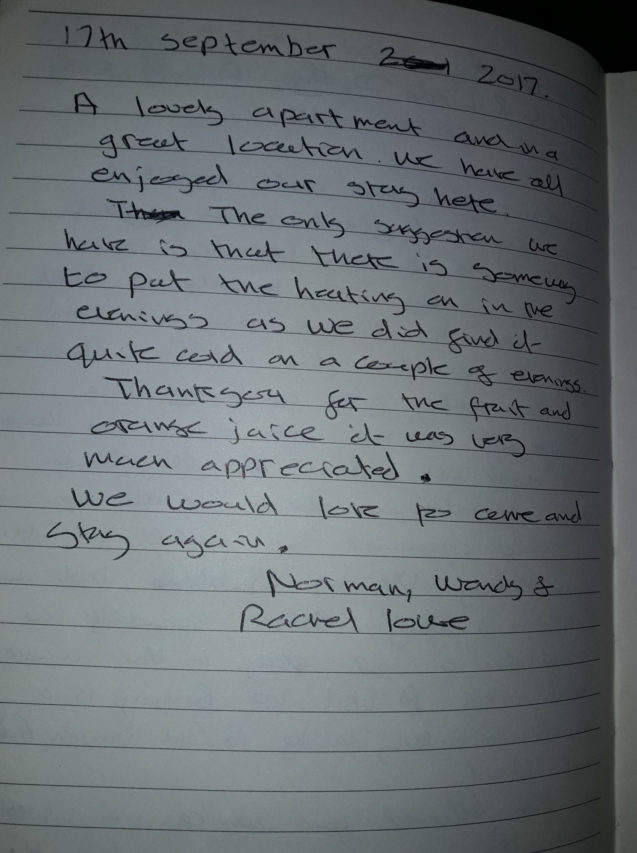 17th september 2017.
A lovely apartment and in a
great location. we have all
enjoyed our stay here.
The only suggestion we
have is that there is someway
to put the heating on in the
evenings as we did find it
quite cold on a couple of evenings.
Thankyou for the fruit and
orange juice it was very
much appreciated.
we would love to come and
stay again.
Norman, Wendy &
Rachel